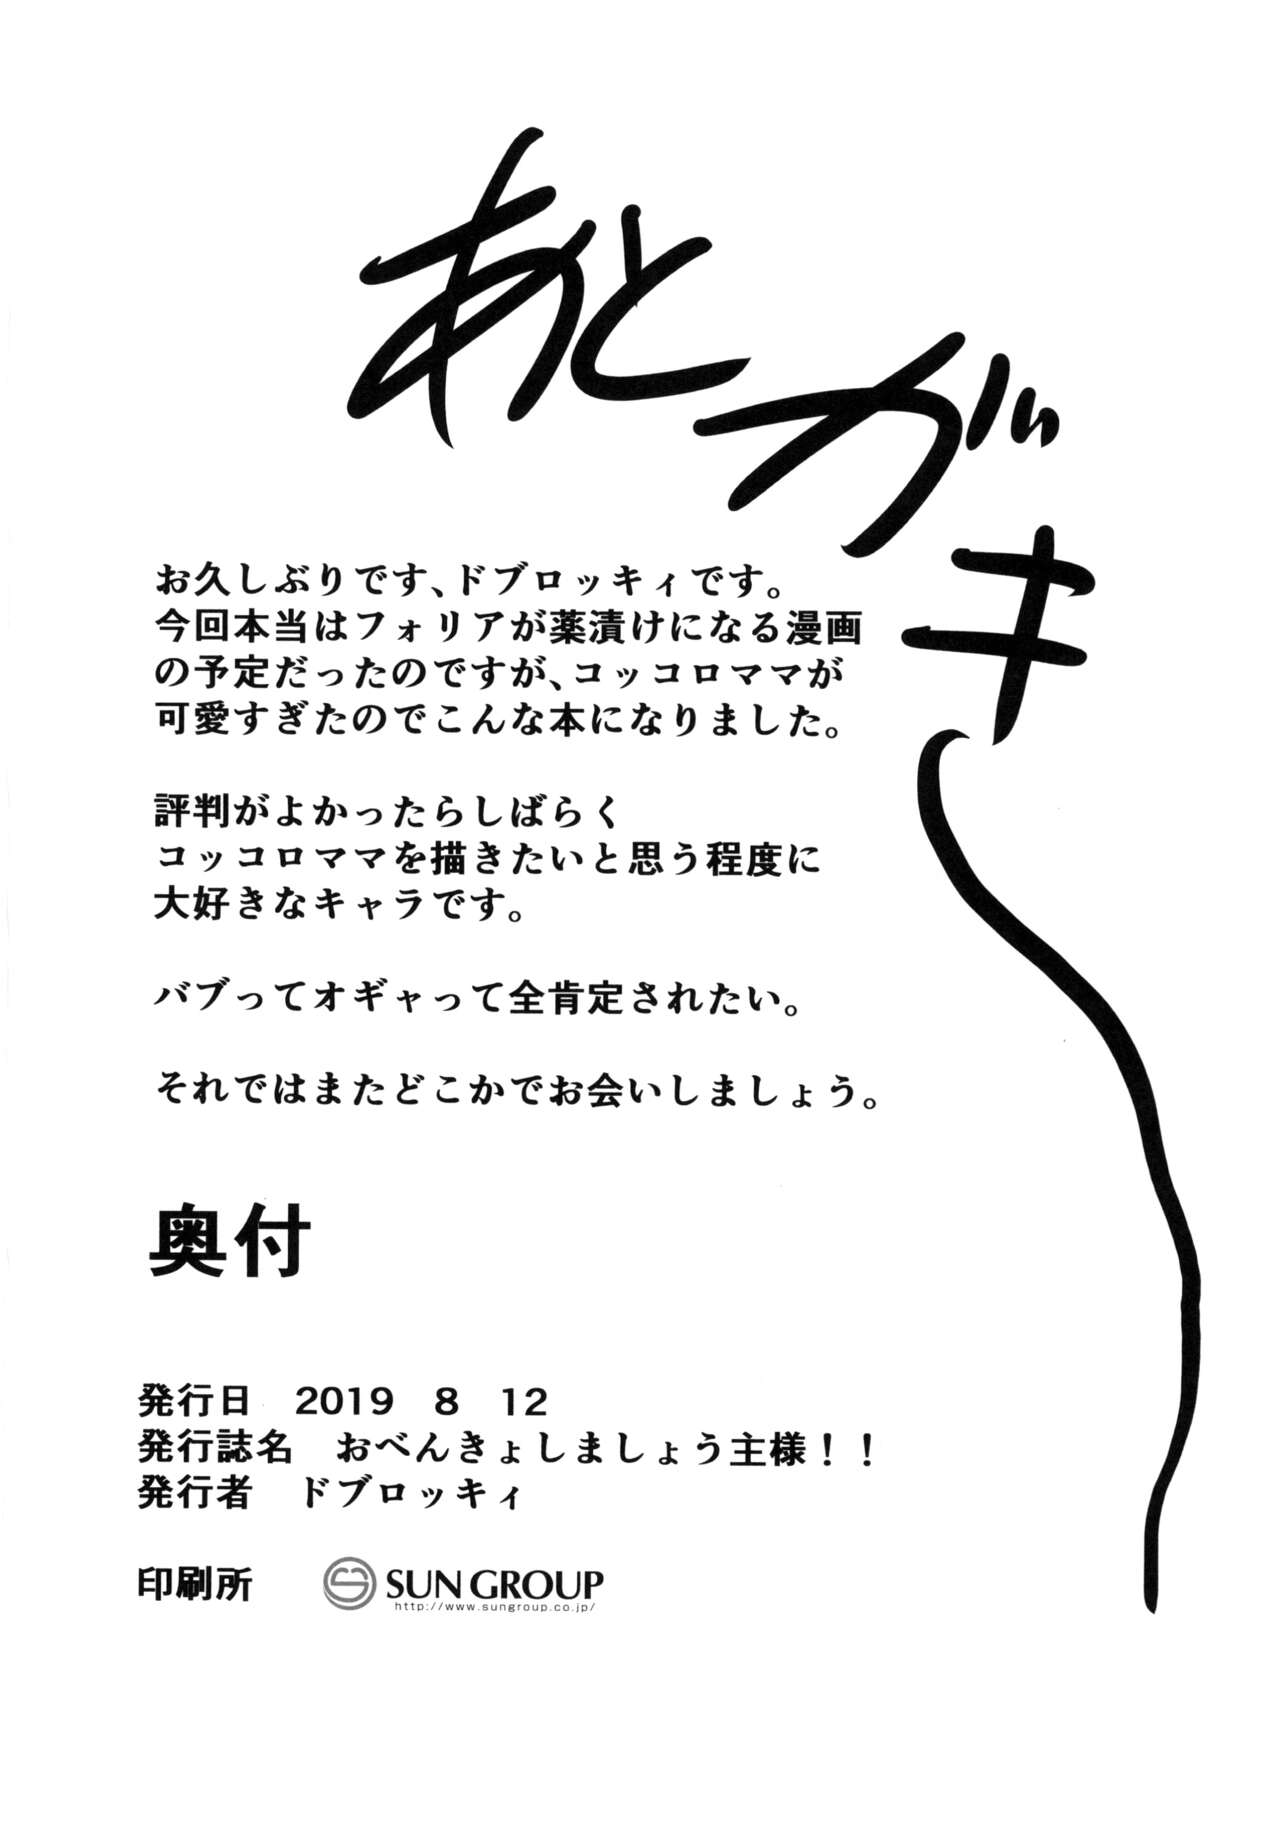 あとがき
お久しぶりです、ドブロッキィです。
今回本当はフォリアが薬漬けになる漫画
の予定だったのですが、コッコロママが
可愛すぎたのでこんな本になりました。
評判がよかったらしばらく
コッコロママを描きたいと思う程度に
大好きなキャラです。
バブってオギャって全肯定されたい。
それではまたどこかでお会いしましょう。
奥付
発行日　2019　8　12
発行誌名　おべんきょしましょう主様！！
発行者　ドブロッキィ
印刷所　SUN GROUP
http://www.sungroup.co.jp/